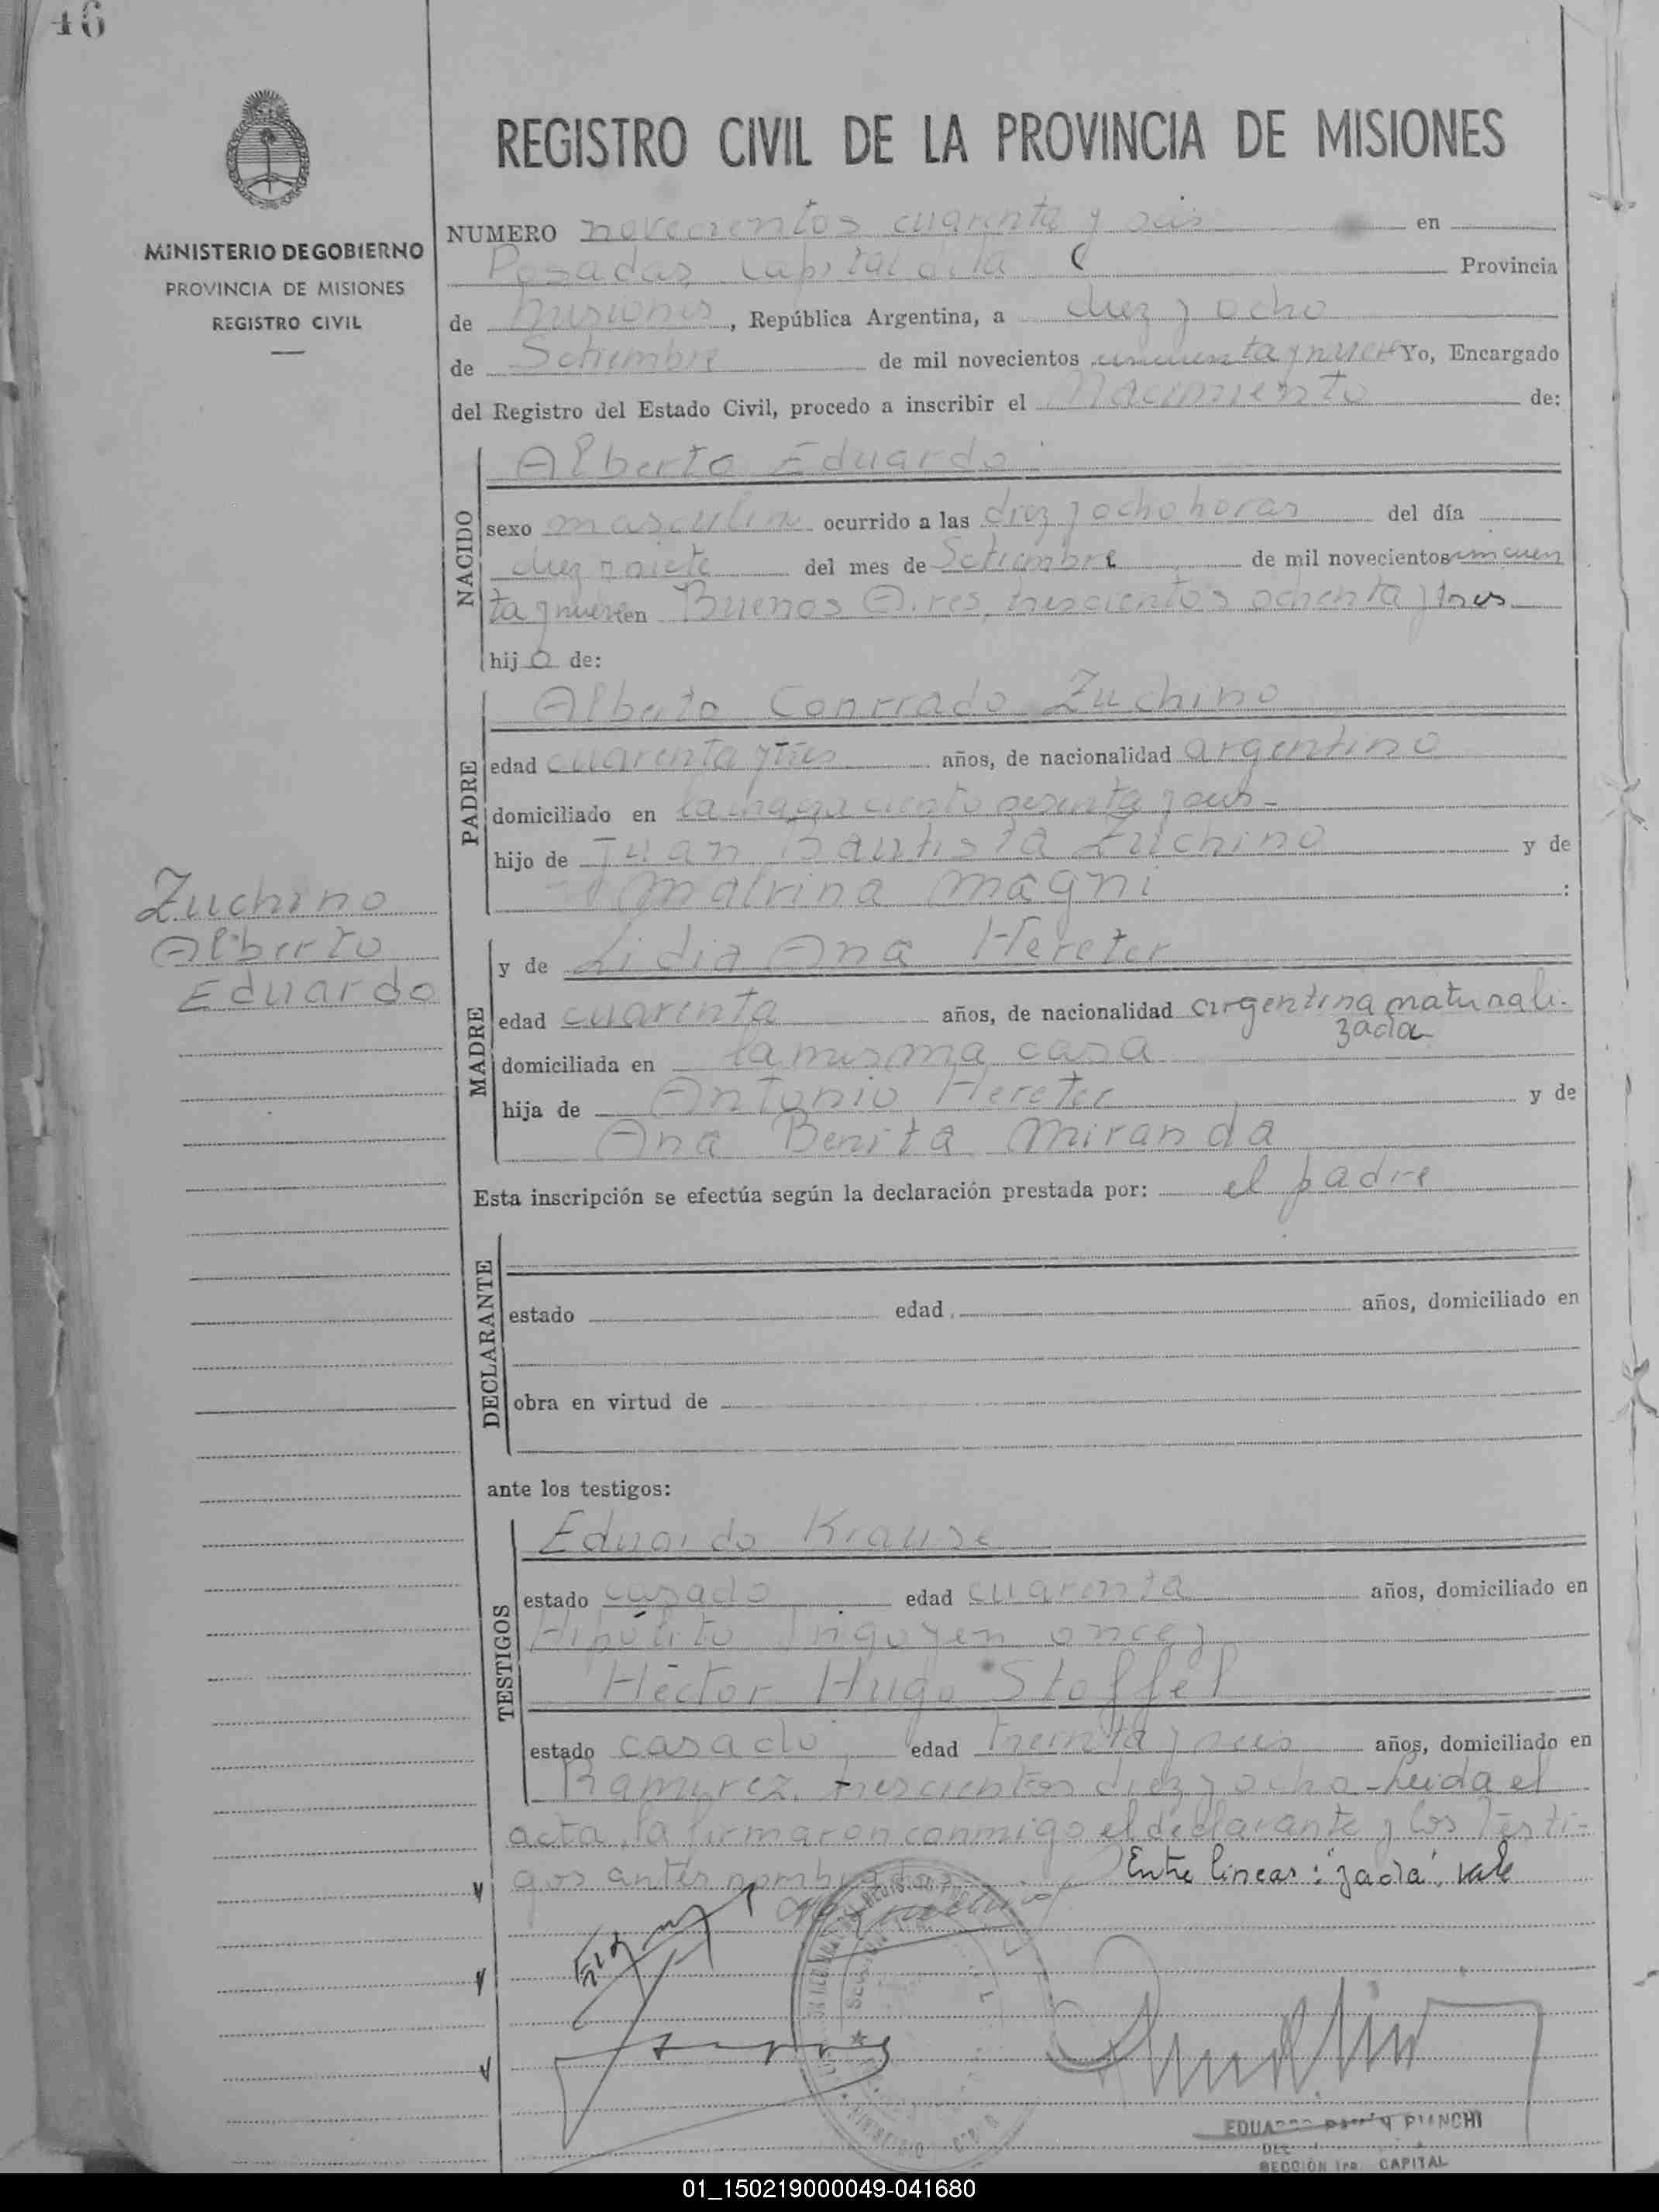 46
MINISTERIO DE GOBIERNO
PROVINCIA DE MISIONES
REGISTRO CIVIL
REGISTRO CIVIL DE LA PROVINCIA DE MISIONES
NUMERO novecientos cuarenta y seis en
Posadas, Capital de la Provincia
de Misiones, República Argentina, a diez y ocho
de Setiembre de mil novecientos cincuenta y nueve Yo, Encargado
del Registro del Estado Civil, procedo a inscribir el Nacimiento de:
NACIDO
Alberto Eduardo
sexo masculino ocurrido a las diez y ocho horas del día
diez y siete del mes de Setiembre de mil novecientos cincuen
ta y nueve en Buenos Aires, trescientos ochenta y tres
hijo de:
PADRE
Alberto Conrrado Zuchino
edad cuarenta y tres años, de nacionalidad argentino
domiciliado en la chagra ciento sesenta y seis -
hijo de Juan Bautista Zuchino y de
Malvina Magni :
Zuchino
Alberto
Eduardo
MADRE
y de Lidia Ana Hereter
edad cuarenta años, de nacionalidad argentina naturali-
zada
domiciliada en la misma casa
hija de Antonio Hereter y de
Ana Benita Miranda
Esta inscripción se efectúa según la declaración prestada por: el padre
DECLARANTE
estado edad, años, domiciliado en
obra en virtud de
ante los testigos:
TESTIGOS
Eduardo Krause
estado casado edad cuarenta años, domiciliado en
Hipólito Irigoyen once y
Héctor Hugo Stoffel
estado casado, edad treinta y seis años, domiciliado en
Ramirez, trescientos diez y ocho - Leida el
acta, la firmaron conmigo el declarante y los testi-
gos antes nombrados
Entre lineas: "zada", vale
SECCIÓN 1ra. CAPITAL
01_150219000049-041680